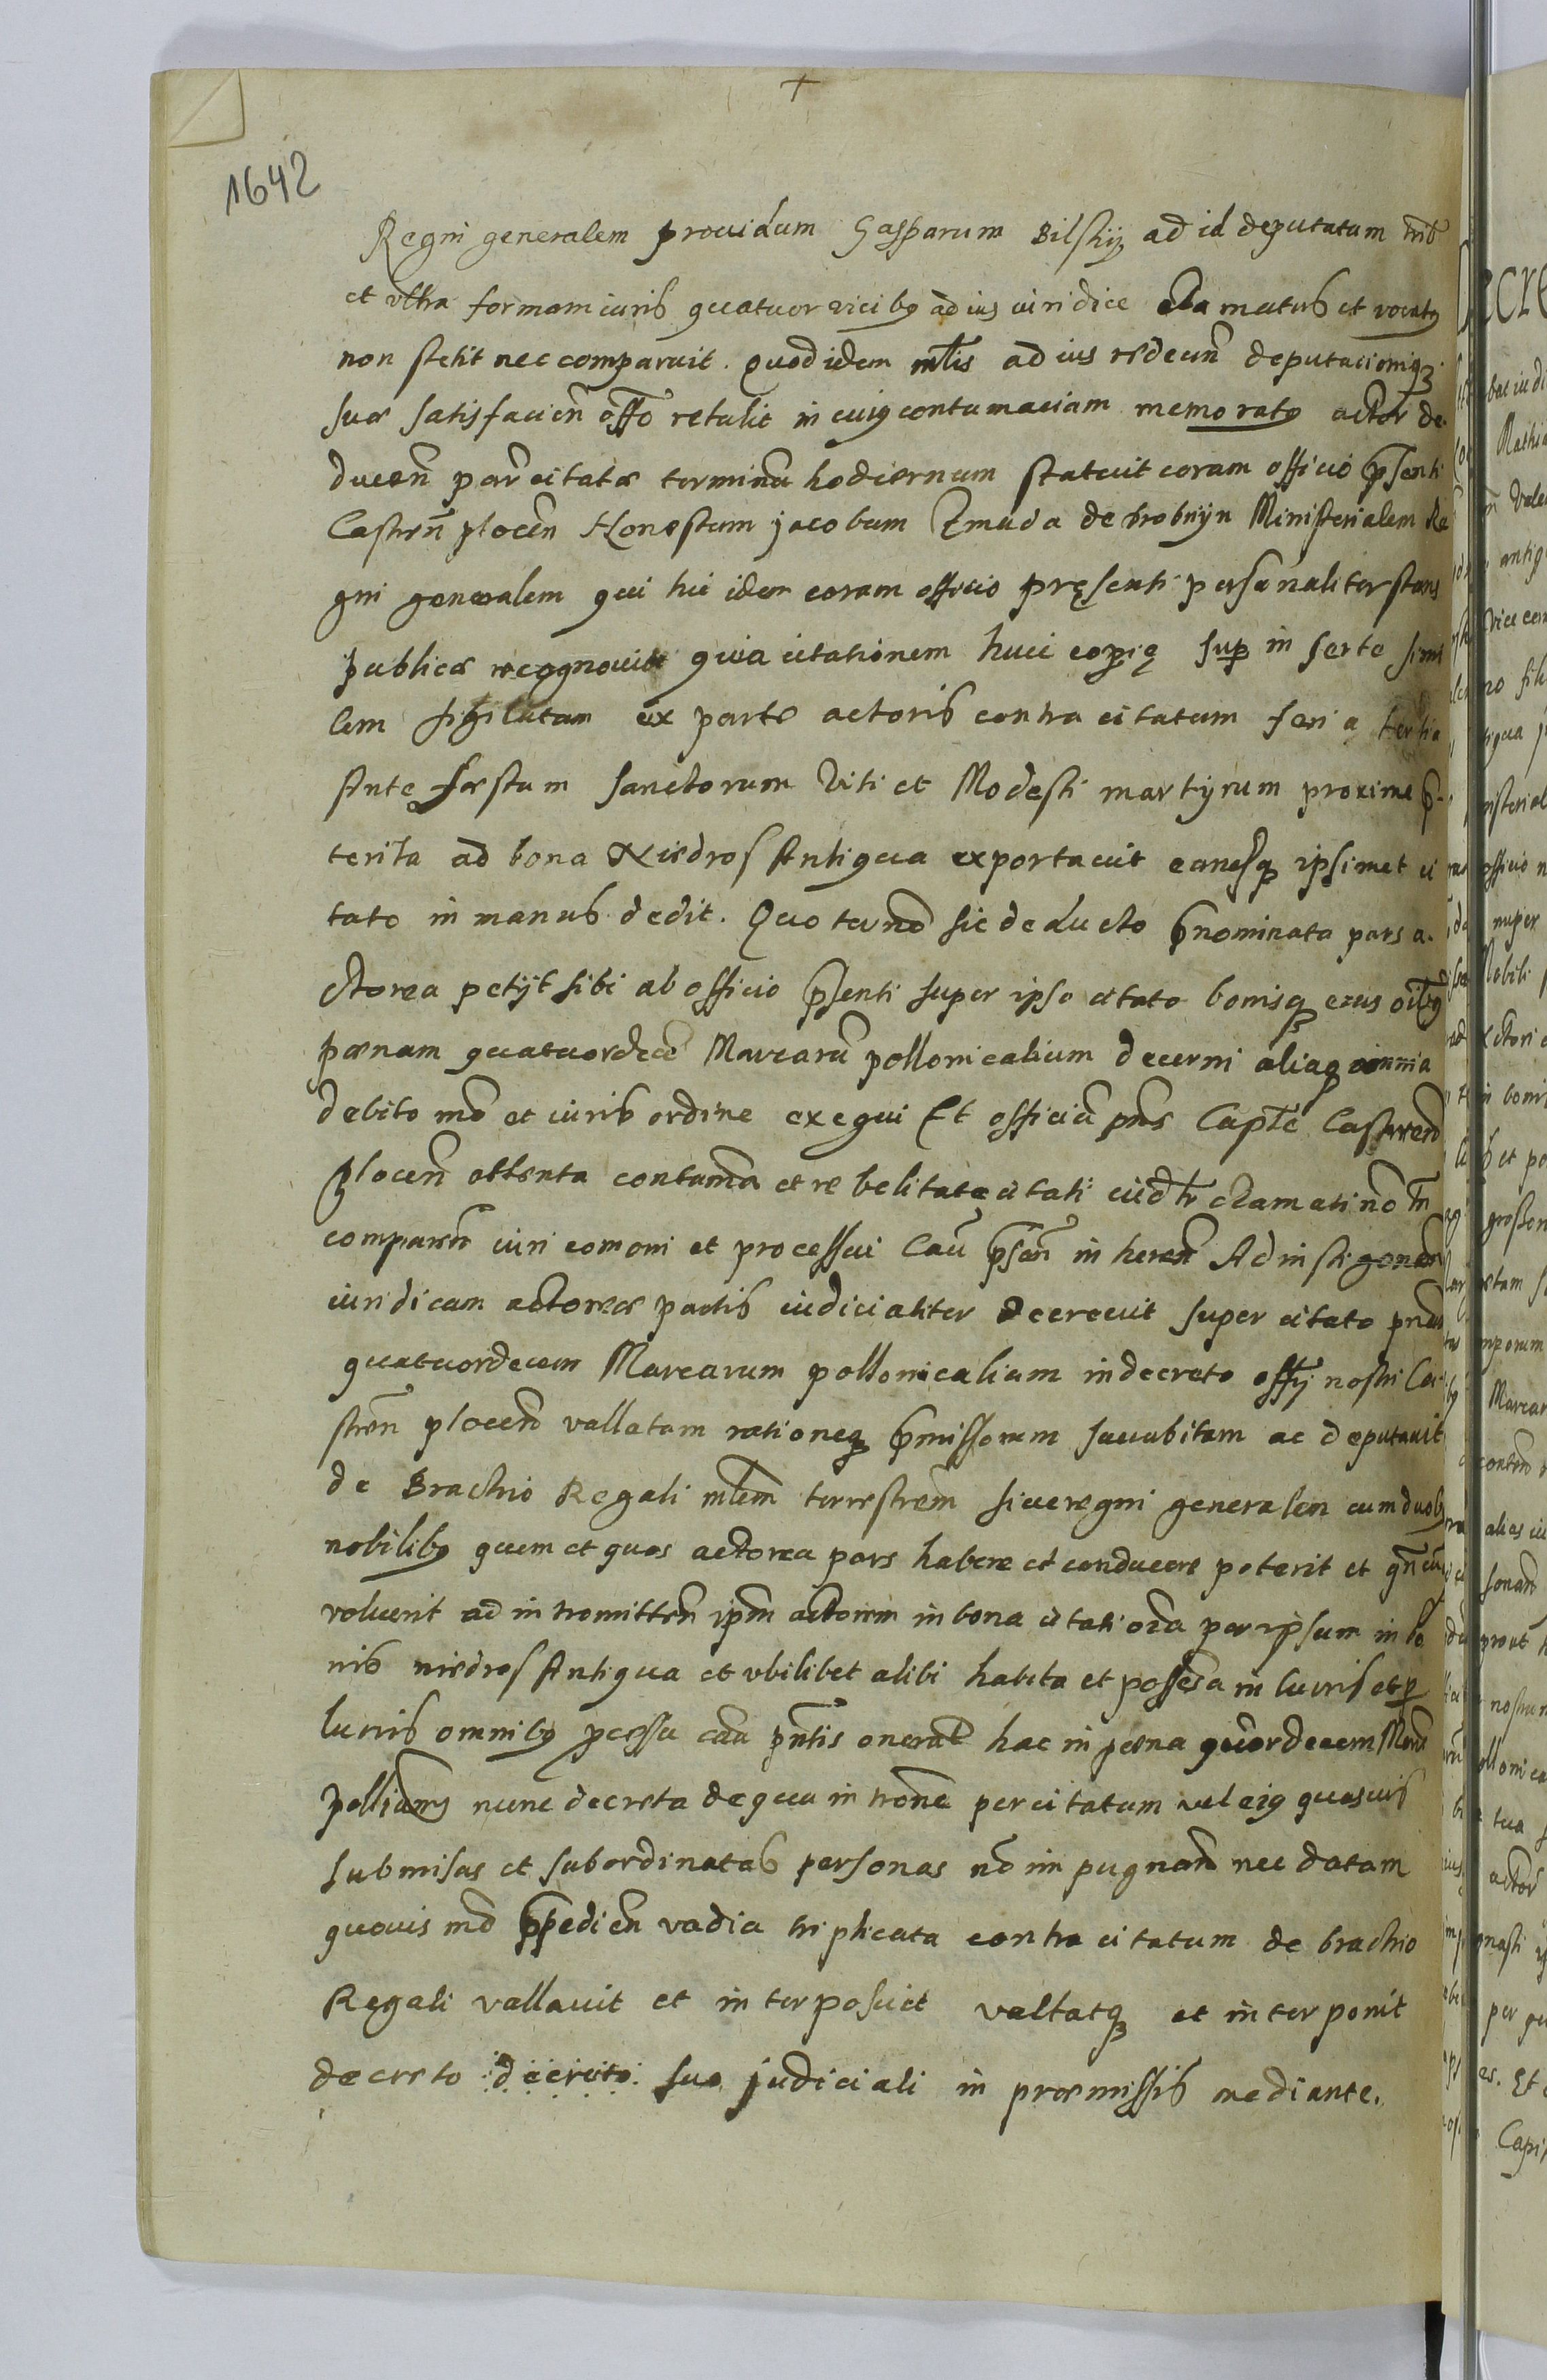 1642
Regni generalem prouidum Gasparum Bilskij ad id deputatum
et vltra formam iuris quatuor vicibq ad ius iuridice clamatus et vocatq
non stetit nec comparuit. Quod idem mtlis ad ius redeun deputationiqz
suæ satisfacien offo retulit in cuiq contumaciam memoratq actor de-
ducen par citatæ terminu hodiernum statuit coram officio psenti
Castren plocen Honestum jacobum Zmuda de Ministerialem Re
gni generalem qui hic idem coram officio pręsenti personaliter stans
publice recognouit quia citationem huic copię sup in serte simi
lem sigilatam ex parte actoris contra citatum feria tertia
Ante festum sanctorum Viti et Modesti martijrum proxime p-
terita ad bona Niedros Antiqua exportauit eamqz ipsimet ci
tato in manus dedit. Quo termo sic deducto pnominata pars a-
ctorea petijt sibi ab officio psenti super ipso citato bonisqz eius oibq
pænam quatuordece Marcaru pollonicalium decerni aliaqz omnia
debito mo et iuris ordine exequi Et officiu pns Capte Castren
Plocen attenta contuma et rebelitate citati clamati no tn
comparen iuri comoni et processui Cau psen in heren Ad in stigonem
iuridicam actoreæ partis iudicialiter decreuit super citato pnam
quatuordecem Marcarum pollonicalium in decreto offij nostri Ca-
stren plocen vallatam rationeqz pmissorum succubitam ac deputauit
de Brachio Regali mlem terrestrem siue regni generalem cum duobq
nobilibq quem et quos actorea pars habere et conducere poterit et qn
voluerit ad intromitten ipm actorem in bona citati oia per ipsum in bo
nis niedros Antiqua et vbilibet alibi habita et possesa in lucris et p
lucris omnibq pcessu cau pntis onerat hac in pæna quordecem Mar
polliums nunc decreta de qua in trone per citatum vel eiq quasuis
submisas et subordinatas personas no im pugnan nec datam
quouis mo ppedien vadia triplicata contra citatum de brachio
Regali vallauit et interposuit vallatqz et interponit
decreto decreto suo judiciali in præmissis mediante.